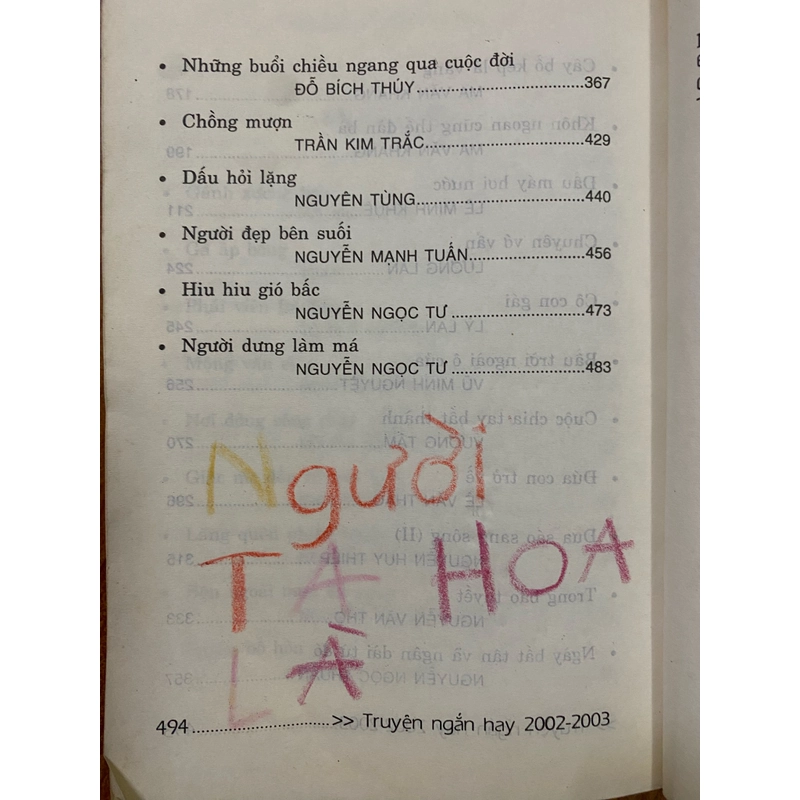 • Những buổi chiều ngang qua cuộc đời
ĐỖ BÍCH THÚY.......................................367
• Chồng mượn
TRẦN KIM TRẮC.....................................429
• Dấu hỏi lặng
NGUYÊN TÙNG.......................................440
• Người đẹp bên suối
NGUYỄN MẠNH TUẤN...........................456
• Hiu hiu gió bấc
NGUYỄN NGỌC TƯ ...............................473
• Người dưng làm má
NGUYỄN NGỌC TƯ ...............................483
Người
TA HOA
LÀ
494................................>> Truyện ngắn hay 2002-2003